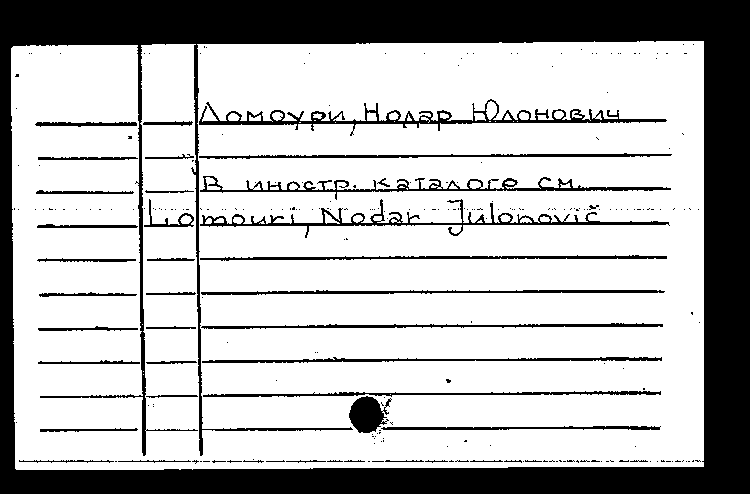 Ломоури, Нодар Юлонович
В иностр. каталоге см.
Lomouri, Nodar Julonovič